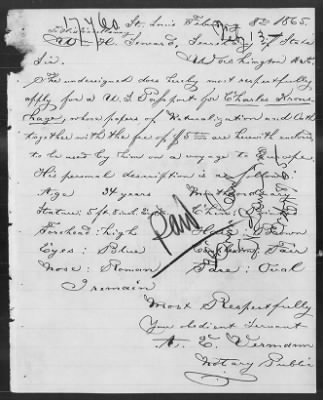 17460
St. Louis Febr. 8th 1865.
Feb 13
Wm. H. Seward, Secretary of State
Washington
Sir.
The undersigned does hereby most respectfully
apply for a U.S. Passport for Charles Krone
whose papers of Naturalization and Oath
together with the fee of $5 are herewith enclosed
to be used by him on a voyage to Europe.
His personal description is as follows:
Age 34 years Mouth: ordinary
Stature: 5 ft. Chin:
Forehead: high Hair: Brown
Eyes: Blue Complexion: Fair
Nose: Roman Face: Oval
Paid
I remain
Most Respectfully
Your obedient Servant
A. E. Vermann
Notary Public